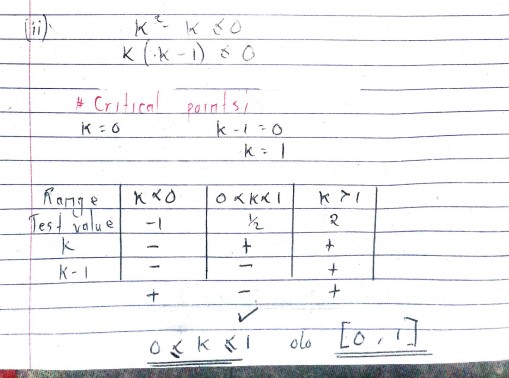 (ii).
k² - k ≤ 0
k (k - 1) ≤ 0
# Critical points;
k = 0 k - 1 = 0
k = 1
Range k < 0 0 < k < 1 k > 1
Test value -1 ½ 2
k - + +
k-1 - - +
+ - +
✓
0 ≤ k ≤ 1 [0, 1]